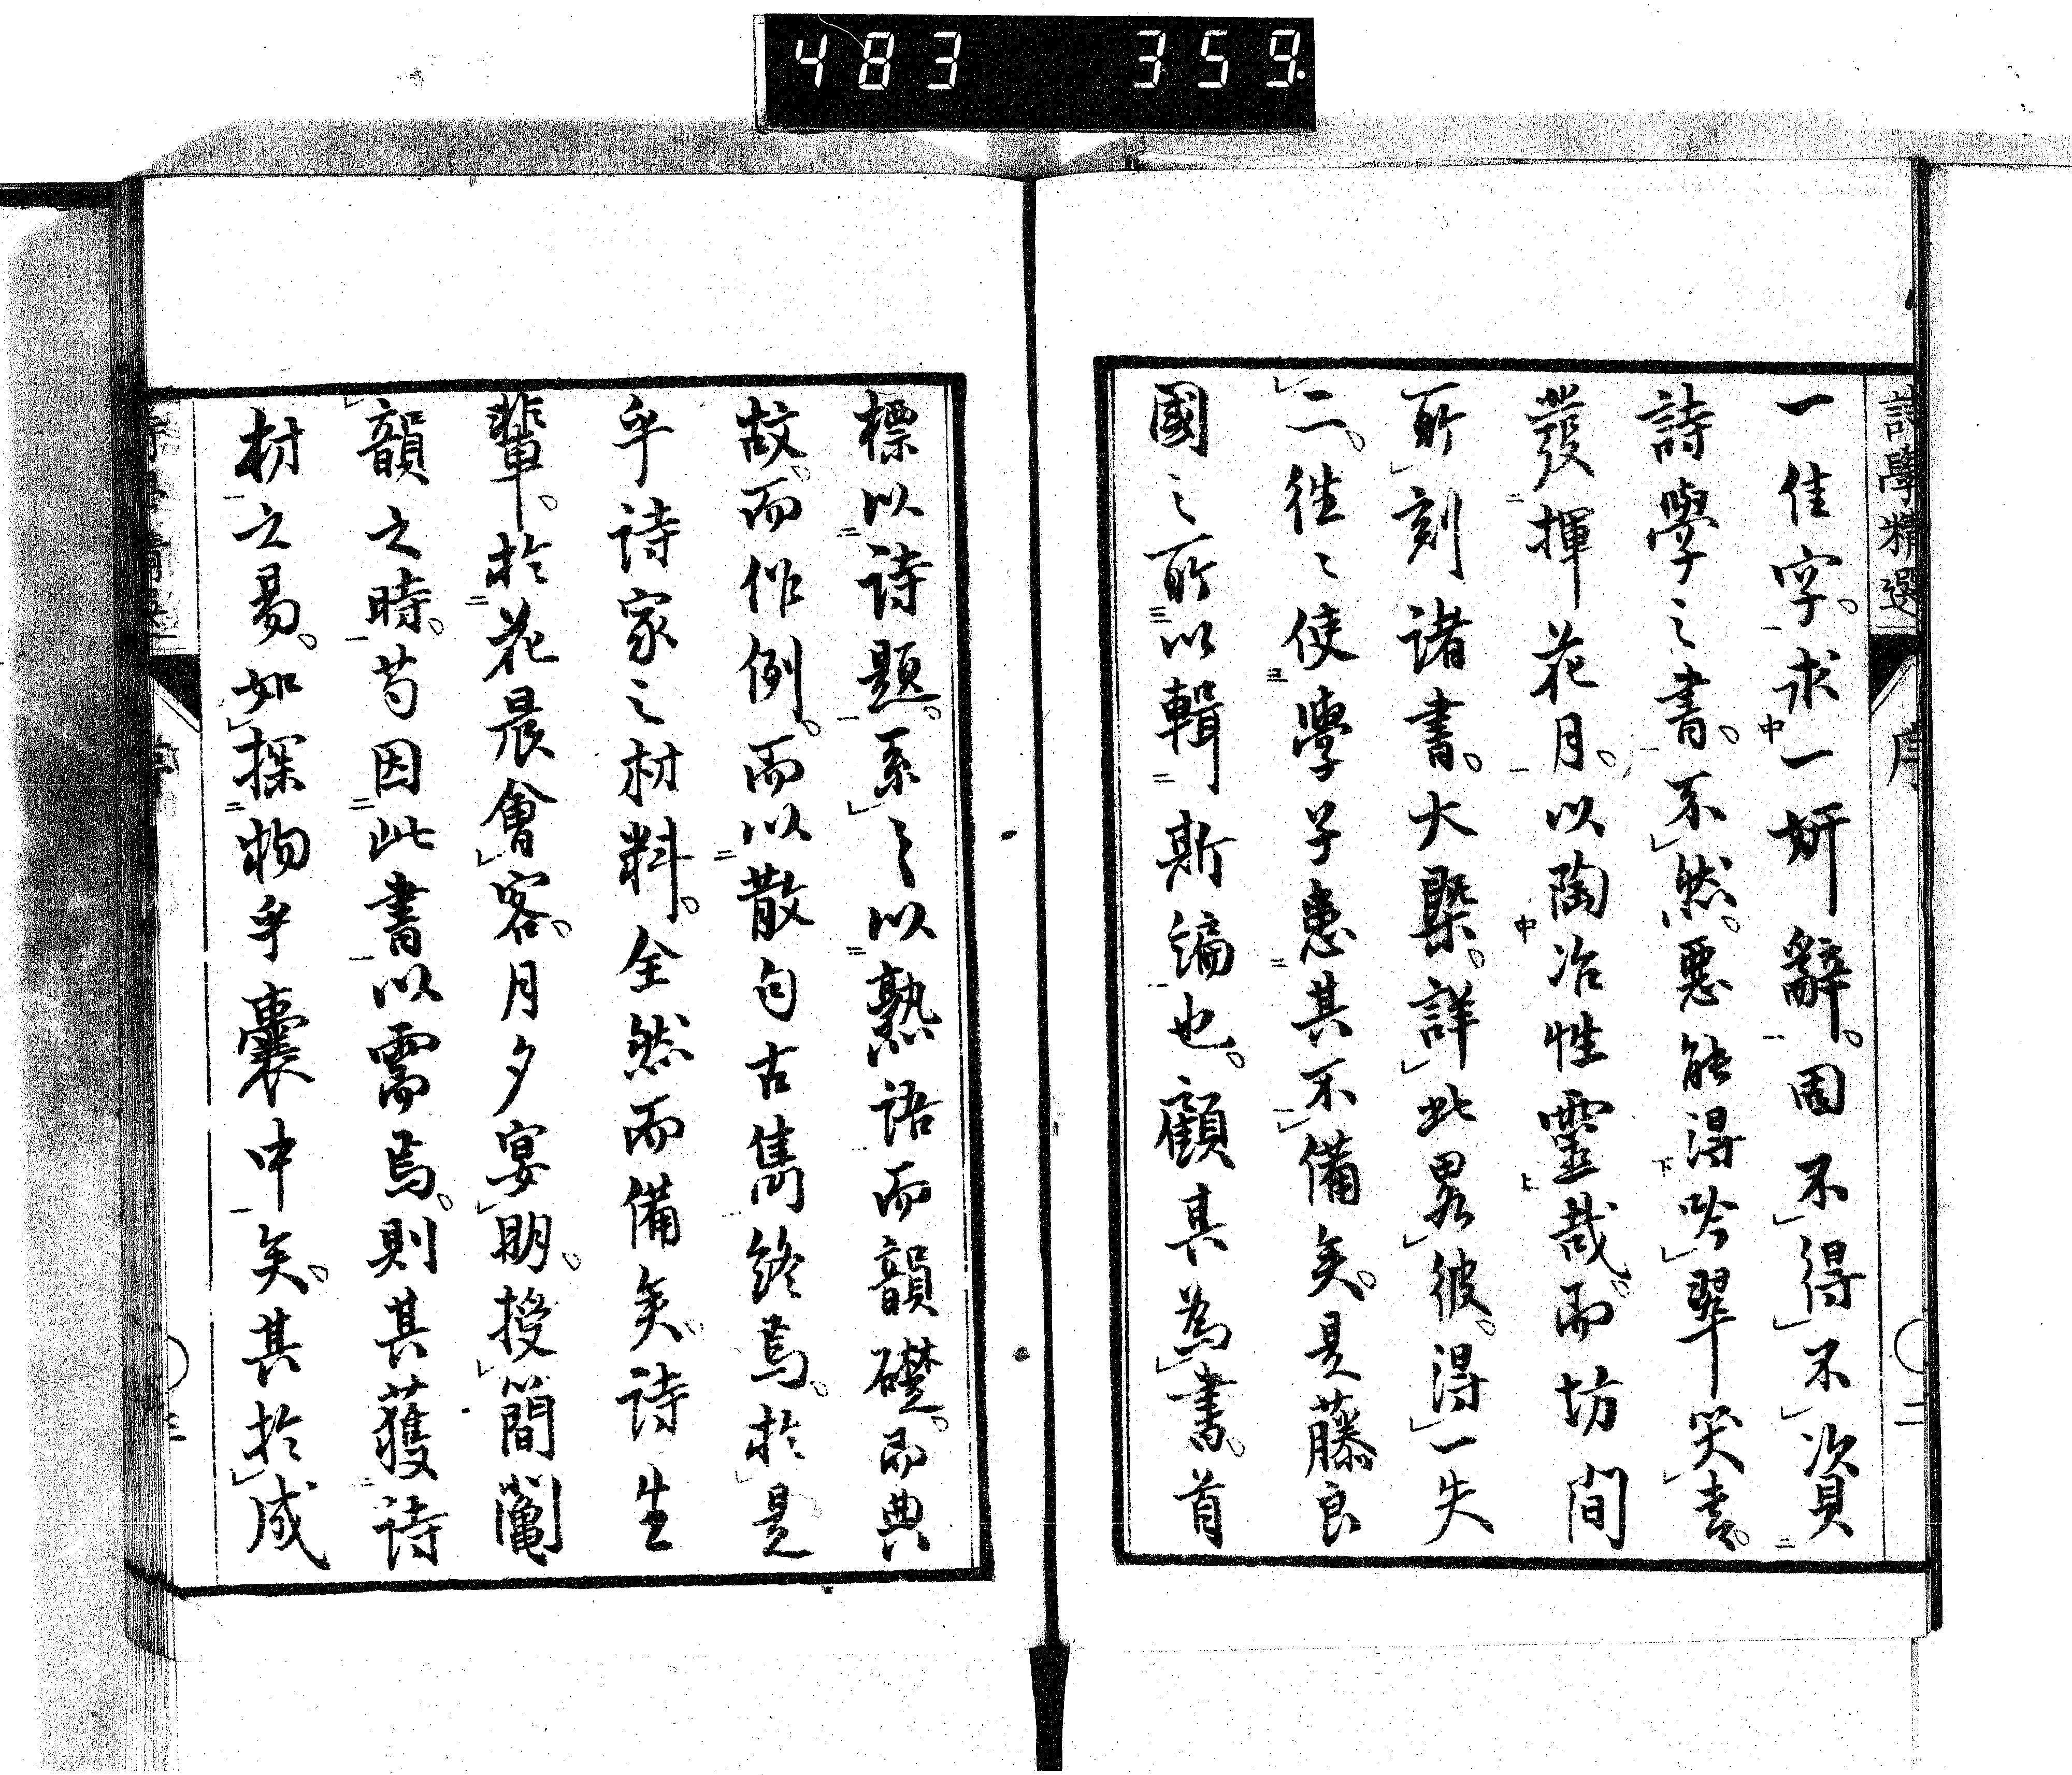 483 359.
詩學精選 序 二
一佳字。求一妍辭。固不得不資
詩學之書。不然。惡能得吟翠哭青。
發揮花月。以陶冶性靈哉。而坊間
所刻諸書。大槩。詳此畧彼。得一失
二。徃〻使學子患其不備矣。是藤良
國之所以輯斯編也。顧其為書。首
標以詩題。系之以熟語而韻礎。而典
故。而作例。而以散句古雋終焉。於是
乎詩家之材料。全然而備矣。詩生
輩。於花晨會客。月夕宴朋。授簡鬮
韻之時。苟因此書以需焉。則其獲詩
材之易。如探物乎囊中矣。其於成